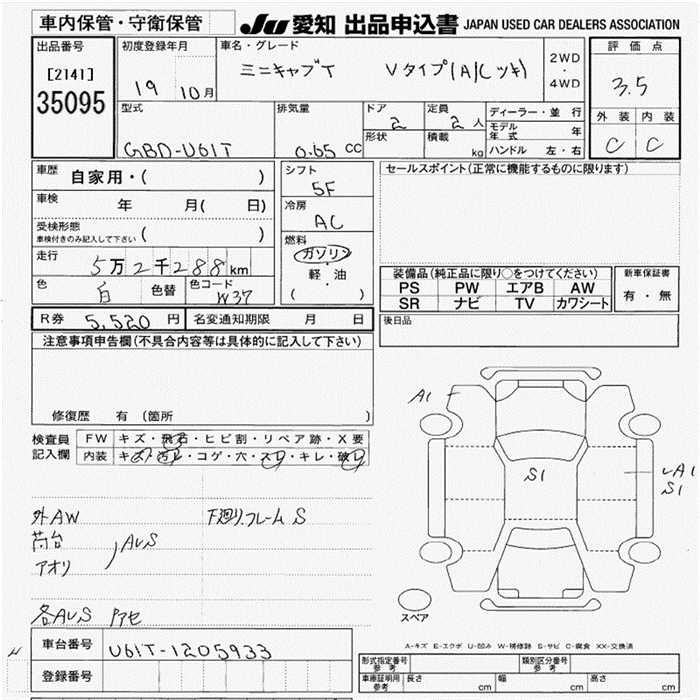 車内保管・守衛保管 JU 愛知 出品申込書 JAPAN USED CAR DEALERS ASSOCIATION
出品番号 初度登録年月 車名・グレード 評価点
[2141] 35095
19 10月 ミニキャブT Vタイプ(A/Cツキ) 2WD・4WD 3.5
外装 内装
C C
型式 排気量 ドア 定員 ディーラー・並行
GBD-U61T 0.65 CC 2 2人
形状 積載 kg モデル年式 年
ハンドル 左・右
車歴 自家用・( ) シフト 5F
セールスポイント(正常に機能するものに限ります)
車検 年 月( 日) 冷房 AC
受検形態 車検付きのみ記入して下さい ( )
燃料 ガソリン 軽・油 ( )
走行 5万2千288km
色 白 色替 色コード W37
装備品(純正品に限り○をつけてください) 新車保証書
PS PW エアB AW 有・無
SR ナビ TV カワシート
R券 5,520円 名変通知期限 月 日
後日品
注意事項申告欄(不具合内容等は具体的に記入して下さい)
修復歴 有(箇所 )
検査員記入欄 FW キズ・飛石・ヒビ割・リペア跡・X要
内装 キズ・汚レ・コゲ・穴・スレ・キレ・破レ
A1
S1
A1
S1
外AW 下廻り.フレームS
荷台
アオリ AUS
各AUS アセ
スペア
A-キズ E-エクボ U-凹み W-補修跡 S-サビ C-腐食 XX-交換済
車台番号 U61T-1205933
登録番号
形式指定番号 参考 類別区分番号 参考
車庫証明用 参考 長さ cm 幅 cm 高さ cm